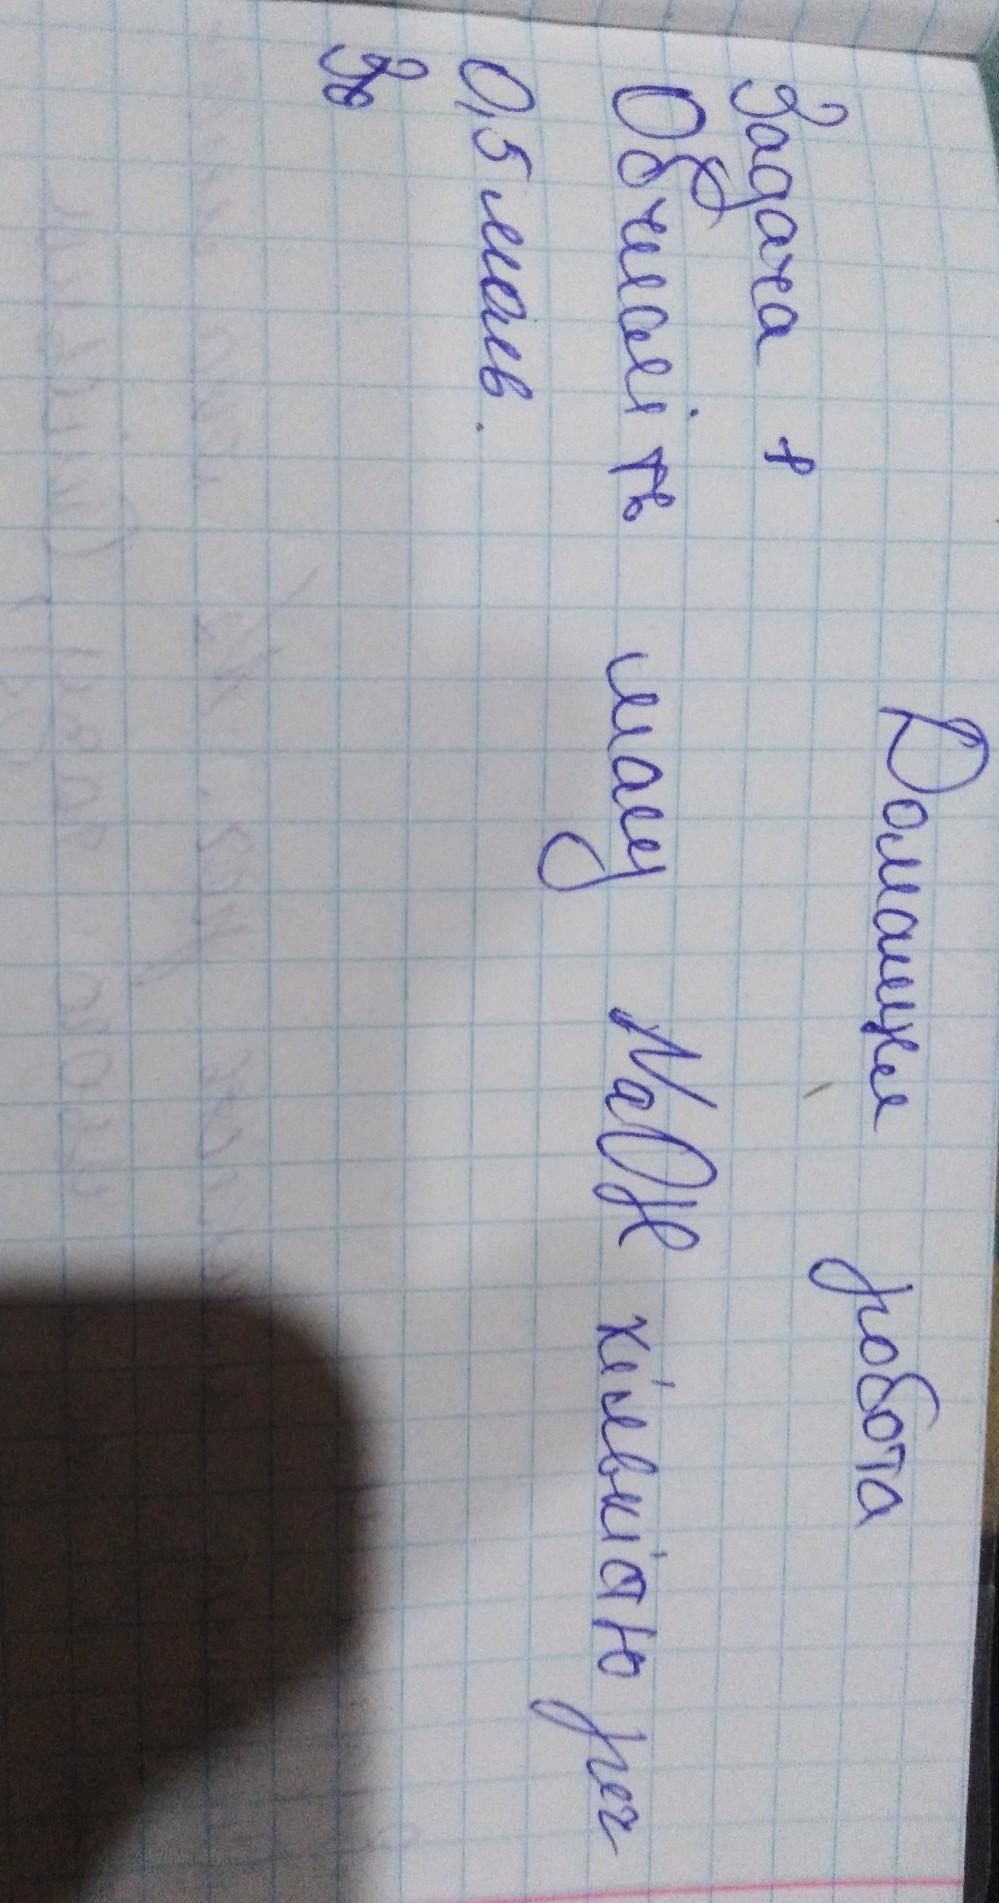 Домашня робота
Задача 1
Обчисліть масу NaOH кількістю реч
0,5 моль.